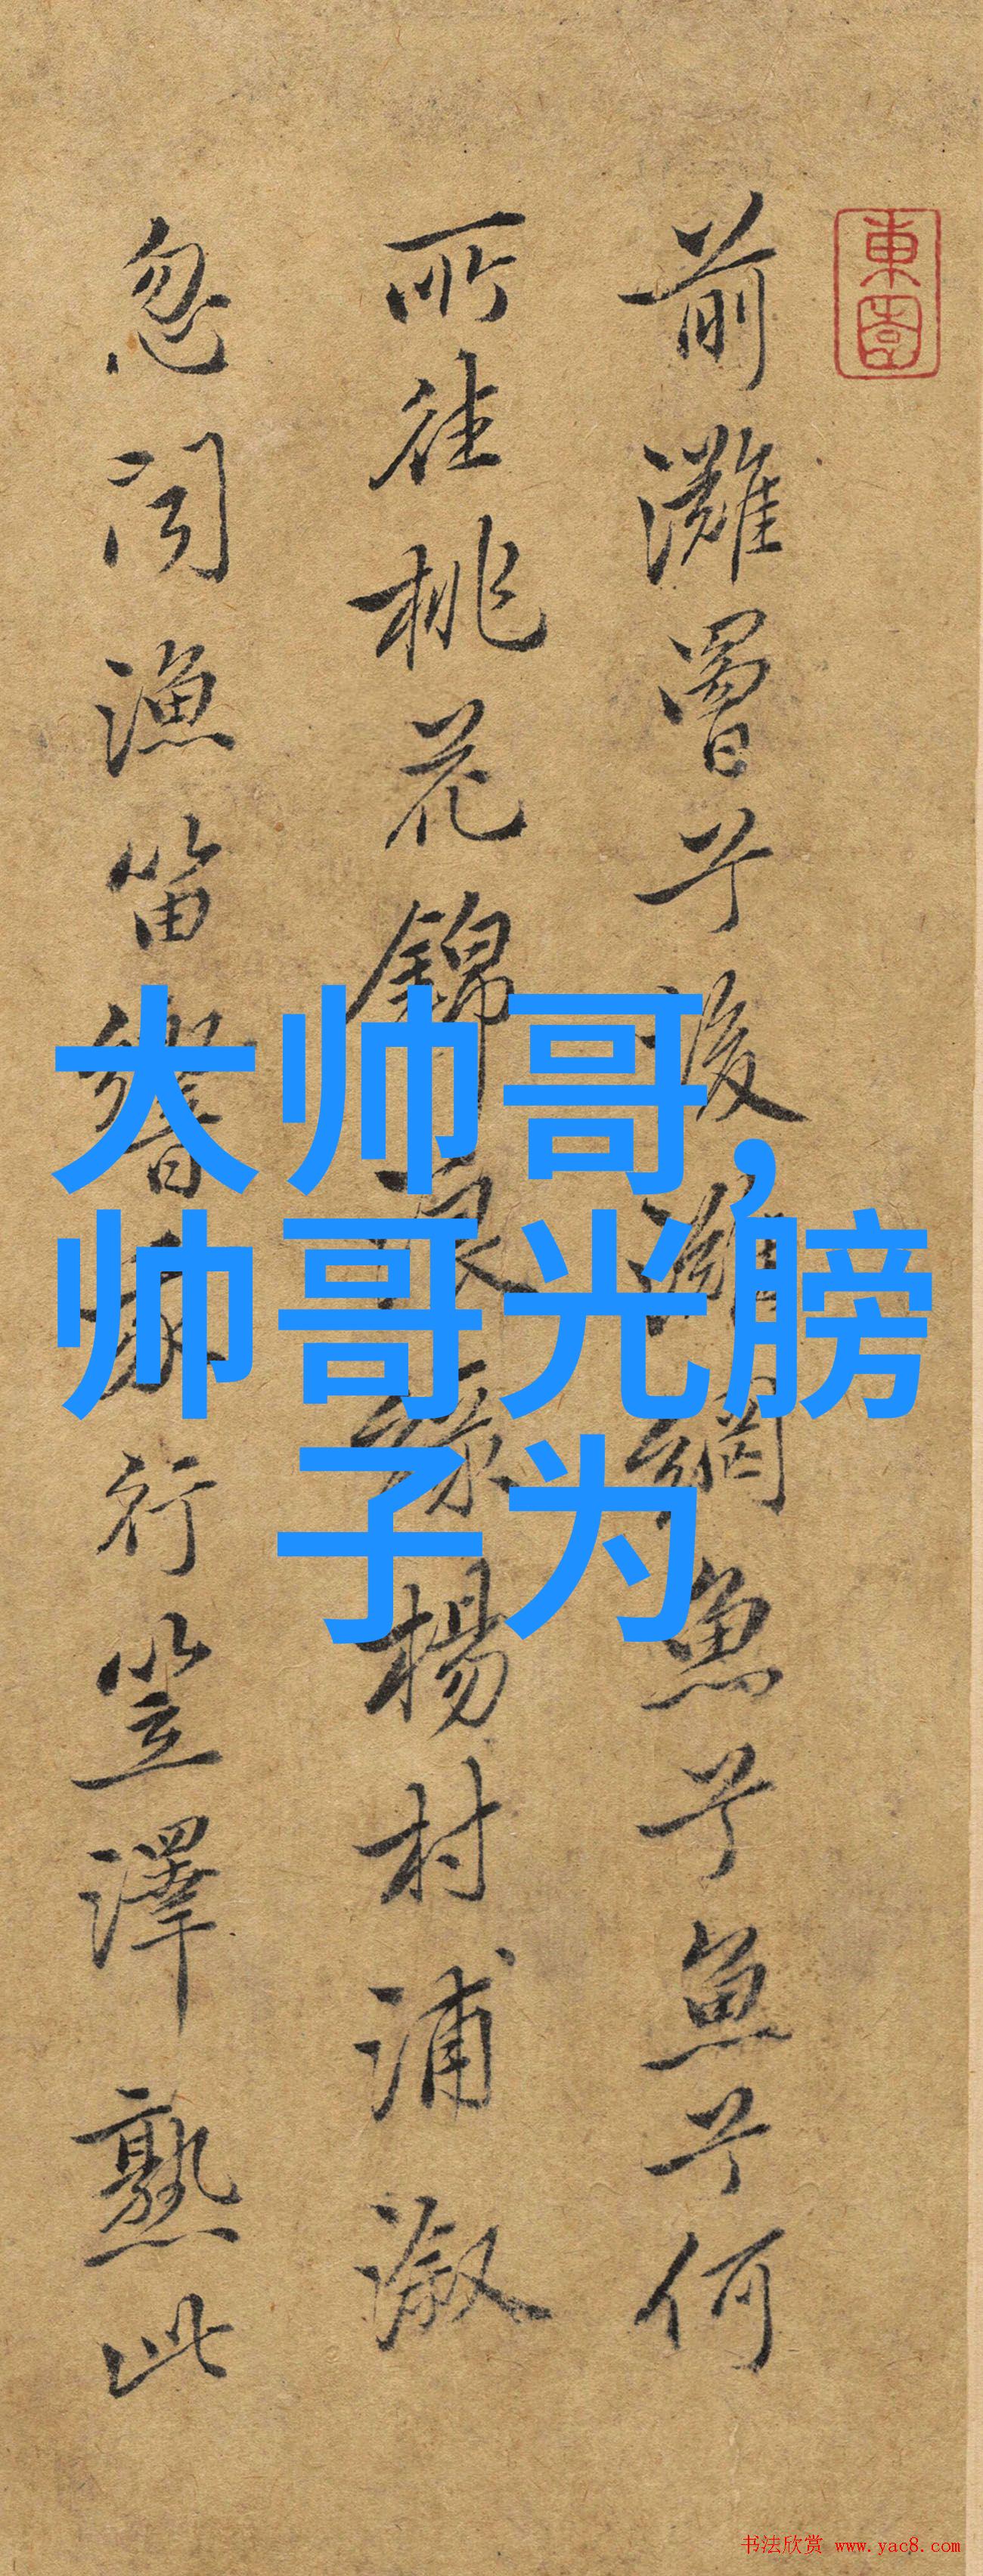 東園
前灘罾兮後灘網魚兮魚兮何
所往桃花錦浪綠楊村浦溆
忽聞漁笛響行笠澤熟此
大帅哥，
帅哥光膀
子为
书法欣赏 www.yac8.com